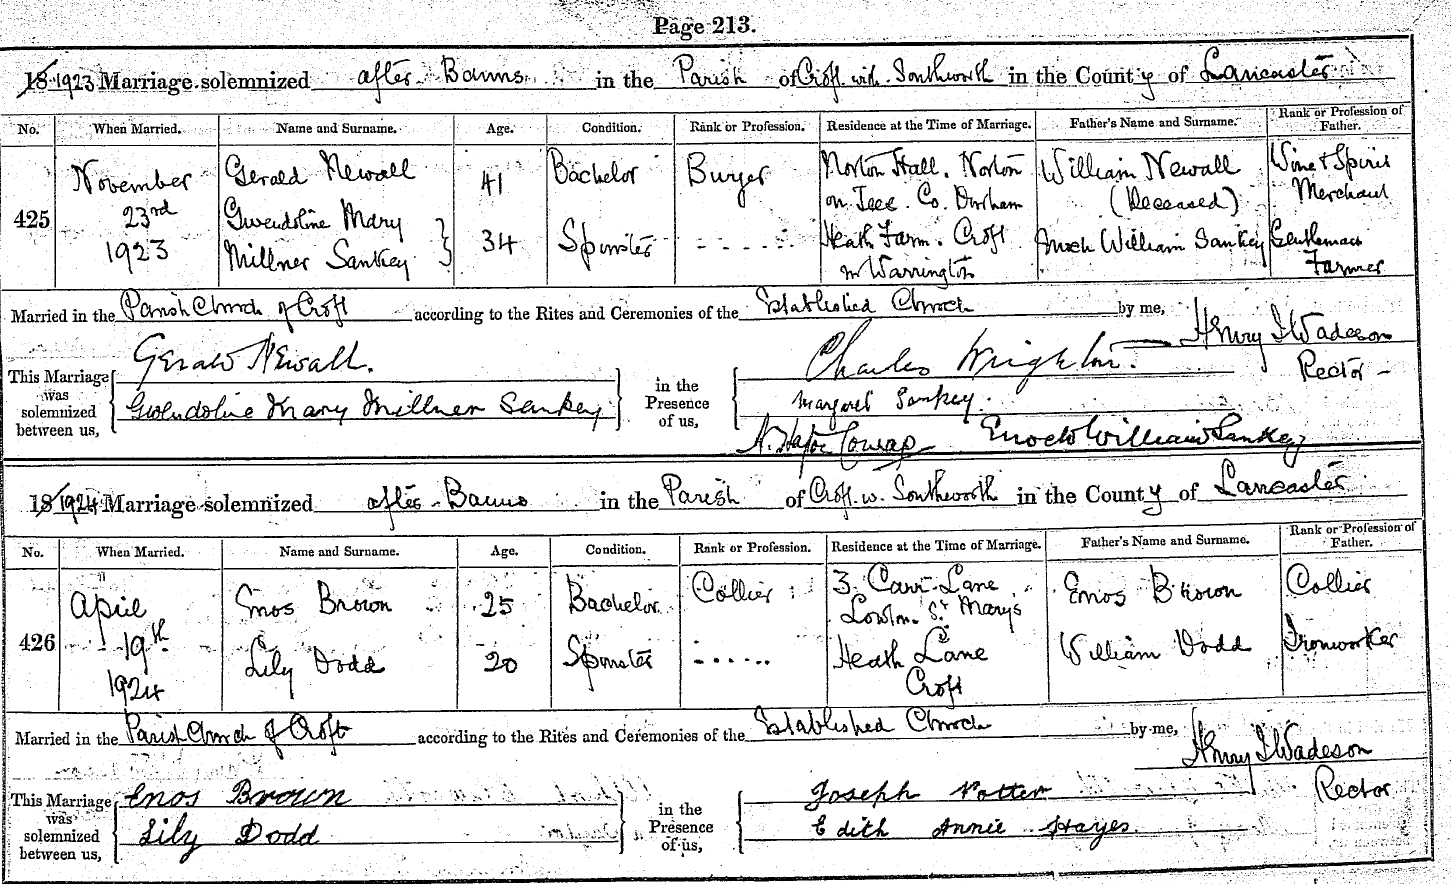 Page 213.
18 1923 Marriage solemnized after Banns in the Parish of Croft with Southworth in the County of Lancaster
No. When Married. Name and Surname. Age. Condition. Rank or Profession. Residence at the Time of Marriage. Father's Name and Surname. Rank or Profession of Father.
425 November 23rd 1923 Gerald Newall 41 Bachelor Buyer Norton Hall. Norton on Tees. Co. Durham William Newall (Deceased) Wine & Spirit Merchant
Gwendoline Mary Millner Sankey } 34 Spinster ------ Heath Farm. Croft nr Warrington Enoch William Sankey Gentleman Farmer
Married in the Parish Church of Croft according to the Rites and Ceremonies of the Established Church by me, Henry J Wadeson
Rector
This Marriage was solemnized between us, { Gerald Newall. Gwendoline Mary Millner Sankey } in the Presence of us, { Charles Wrighton.
Margaret Sankey.
Enoch William Sankey
18 1924 Marriage solemnized after Banns in the Parish of Croft w. Southworth in the County of Lancaster
No. When Married. Name and Surname. Age. Condition. Rank or Profession. Residence at the Time of Marriage. Father's Name and Surname. Rank or Profession of Father.
426 April 19th 1924 Enos Brown 25 Bachelor Collier 3. Carr Lane Lowton St Marys Enos Brown Collier
Lily Dodd 20 Spinster ...... Heath Lane Croft William Dodd Ironworker
Married in the Parish Church of Croft according to the Rites and Ceremonies of the Established Church by me, Henry J Wadeson
Rector
This Marriage was solemnized between us, { Enos Brown Lily Dodd } in the Presence of us, { Joseph Potter
Edith Annie Hayes.